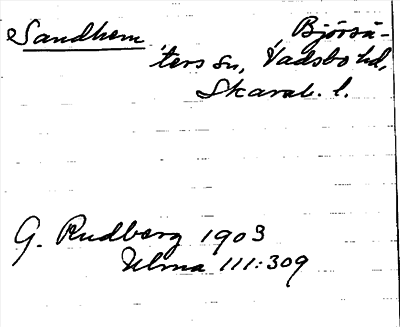 Sandhem , Björsä-
ters sn, Vadsbo hd,
Skarab. l.
G. Rudberg 1903
Ulma 111:309